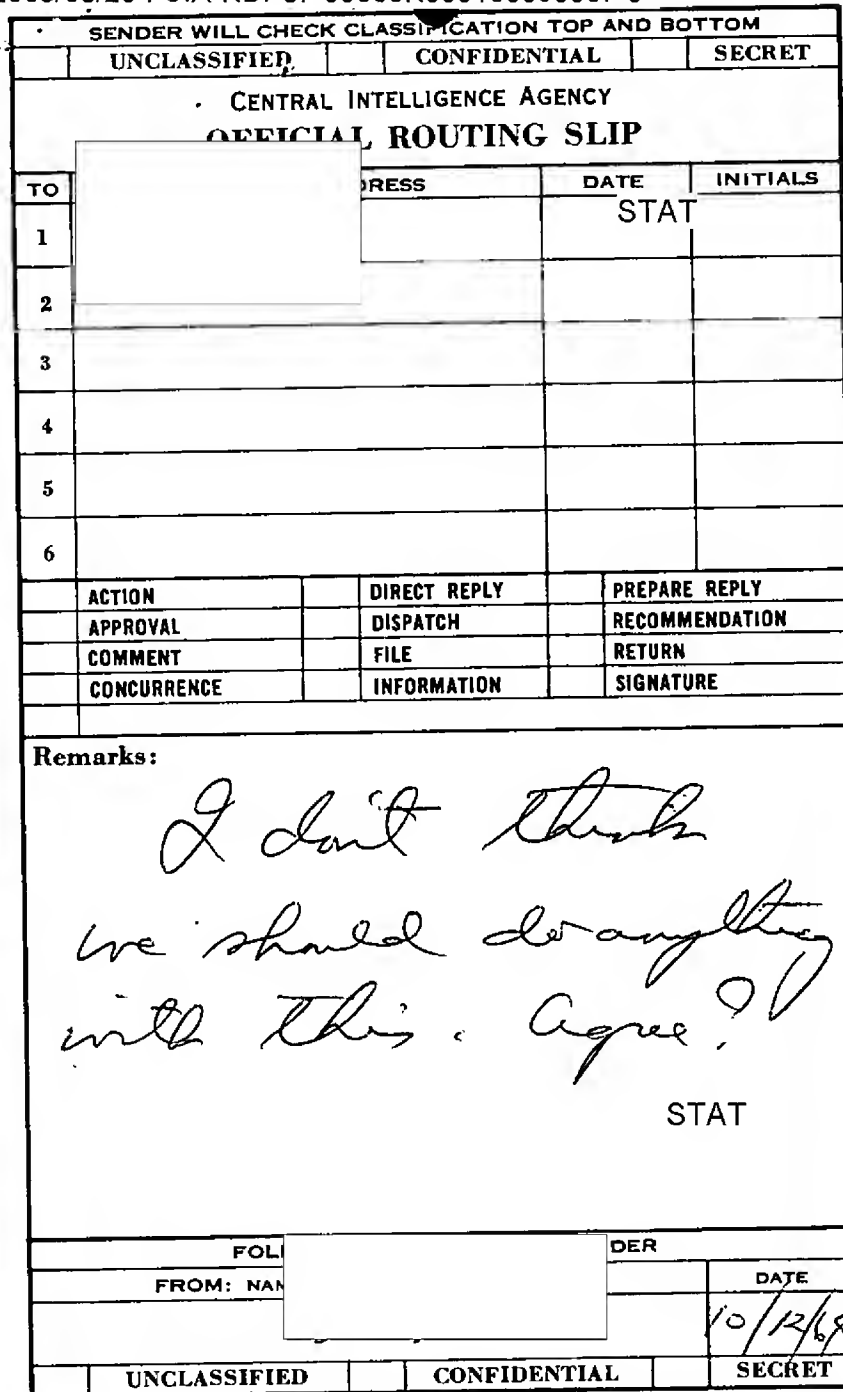 SENDER WILL CHECK CLASSIFICATION TOP AND BOTTOM
UNCLASSIFIED CONFIDENTIAL SECRET
CENTRAL INTELLIGENCE AGENCY
OFFICIAL ROUTING SLIP
TO DRESS DATE INITIALS
1 STAT
2
3
4
5
6
ACTION DIRECT REPLY PREPARE REPLY
APPROVAL DISPATCH RECOMMENDATION
COMMENT FILE RETURN
CONCURRENCE INFORMATION SIGNATURE
Remarks:
I don't think
we should do anything
with this. Agree?
STAT
FOL DER
FROM: NAM DATE
10/12/
UNCLASSIFIED CONFIDENTIAL SECRET